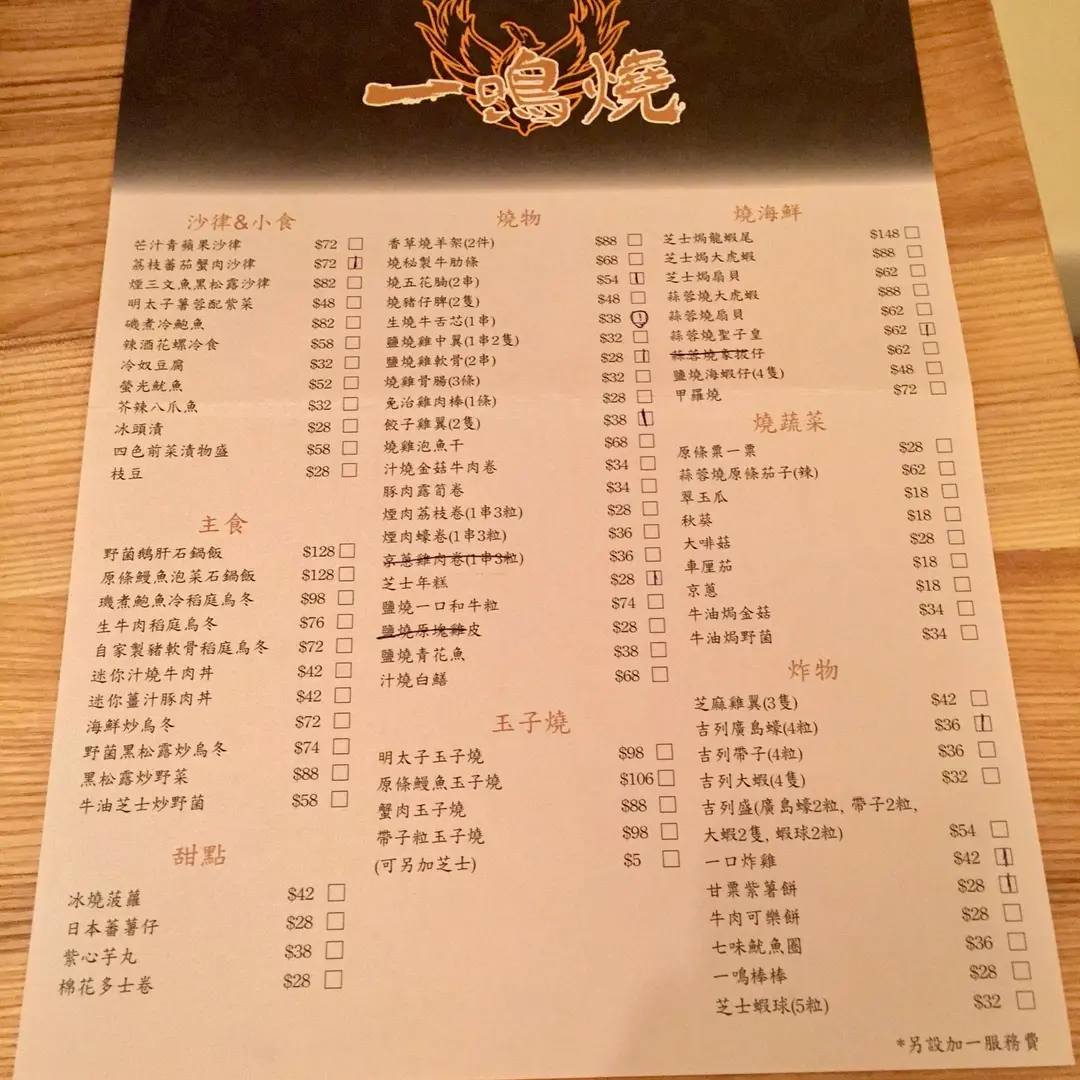 一鳴燒
沙律&小食
芒汁青蘋果沙律 $72
荔枝蕃茄蟹肉沙律 $72
煙三文魚黑松露沙律 $82
明太子薯蓉配紫菜 $48
磯煮冷鮑魚 $82
辣酒花螺冷食 $58
冷奴豆腐 $32
螢光魷魚 $52
芥辣八爪魚 $32
冰頭漬 $28
四色前菜漬物盛 $58
枝豆 $28
主食
野菌鵝肝石鍋飯 $128
原條鰻魚泡菜石鍋飯 $128
磯煮鮑魚冷稻庭烏冬 $98
生牛肉稻庭烏冬 $76
自家製豬軟骨稻庭烏冬 $72
迷你汁燒牛肉丼 $42
迷你薑汁豚肉丼 $42
海鮮炒烏冬 $72
野菌黑松露炒烏冬 $74
黑松露炒野菜 $88
牛油芝士炒野菌 $58
甜點
冰燒菠蘿 $42
日本蕃薯仔 $28
紫心芋丸 $38
棉花多士卷 $28
燒物
香草燒羊架(2件) $88
燒秘製牛肋條 $68
燒五花腩(2串) $54
燒豬仔脾(2隻) $48
生燒牛舌芯(1串) $38
鹽燒雞中翼(1串2隻) $32
鹽燒雞軟骨(2串) $28
燒雞骨腸(3條) $32
免治雞肉棒(1條) $28
餃子雞翼(2隻) $38
燒雞泡魚干 $68
汁燒金菇牛肉卷 $34
豚肉露筍卷 $34
煙肉荔枝卷(1串3粒) $28
煙肉蠔卷(1串3粒) $36
京蔥雞肉卷(1串3粒) $36
芝士年糕 $28
鹽燒一口和牛粒 $74
鹽燒原塊雞皮 $28
鹽燒青花魚 $38
汁燒白鱔 $68
玉子燒
明太子玉子燒 $98
原條鰻魚玉子燒 $106
蟹肉玉子燒 $88
帶子粒玉子燒 $98
(可另加芝士) $5
燒海鮮
芝士焗龍蝦尾 $148
芝士焗大虎蝦 $88
芝士焗扇貝 $62
蒜蓉燒大虎蝦 $88
蒜蓉燒扇貝 $62
蒜蓉燒聖子皇 $62
蒜蓉燒象拔仔 $62
鹽燒海蝦仔(4隻) $48
甲羅燒 $72
燒蔬菜
原條粟一粟 $28
蒜蓉燒原條茄子(辣) $62
翠玉瓜 $18
秋葵 $18
大啡菇 $28
車厘茄 $18
京蔥 $18
牛油焗金菇 $34
牛油焗野菌 $34
炸物
芝麻雞翼(3隻) $42
吉列廣島蠔(4粒) $36
吉列帶子(4粒) $36
吉列大蝦(4隻) $32
吉列盛(廣島蠔2粒, 帶子2粒,
大蝦2隻, 蝦球2粒) $54
一口炸雞 $42
甘粟紫薯餅 $28
牛肉可樂餅 $28
七味魷魚圈 $36
一鳴棒棒 $28
芝士蝦球(5粒) $32
*另設加一服務費